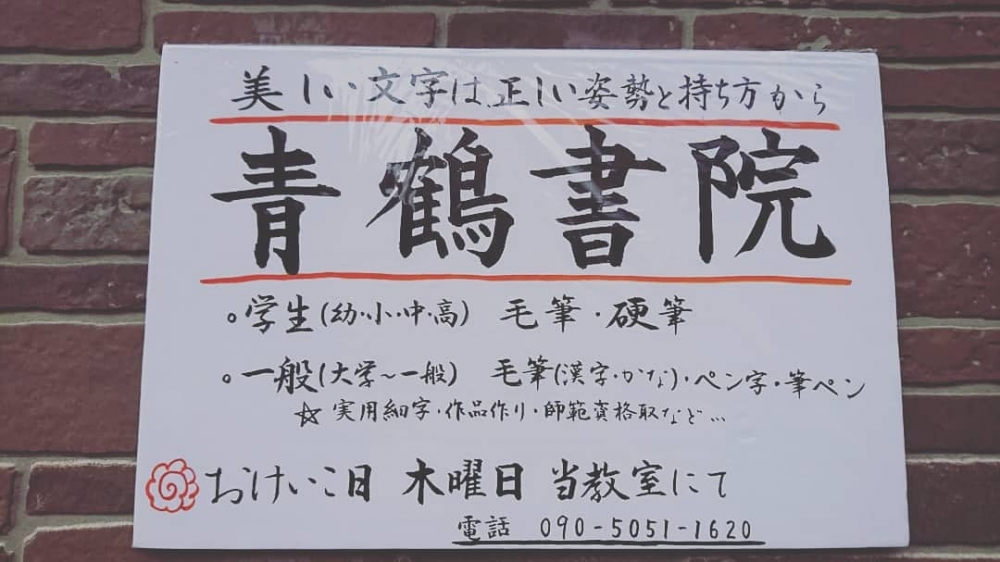 美しい文字は正しい姿勢と持ち方から
青鶴書院
。学生(幼・小・中・高) 毛筆・硬筆
。一般(大学〜一般) 毛筆(漢字・かな)・ペン字・筆ペン
☆実用細字・作品作り・師範資格取など…
おけいこ日 木曜日 当教室にて
電話 090-5051-1620